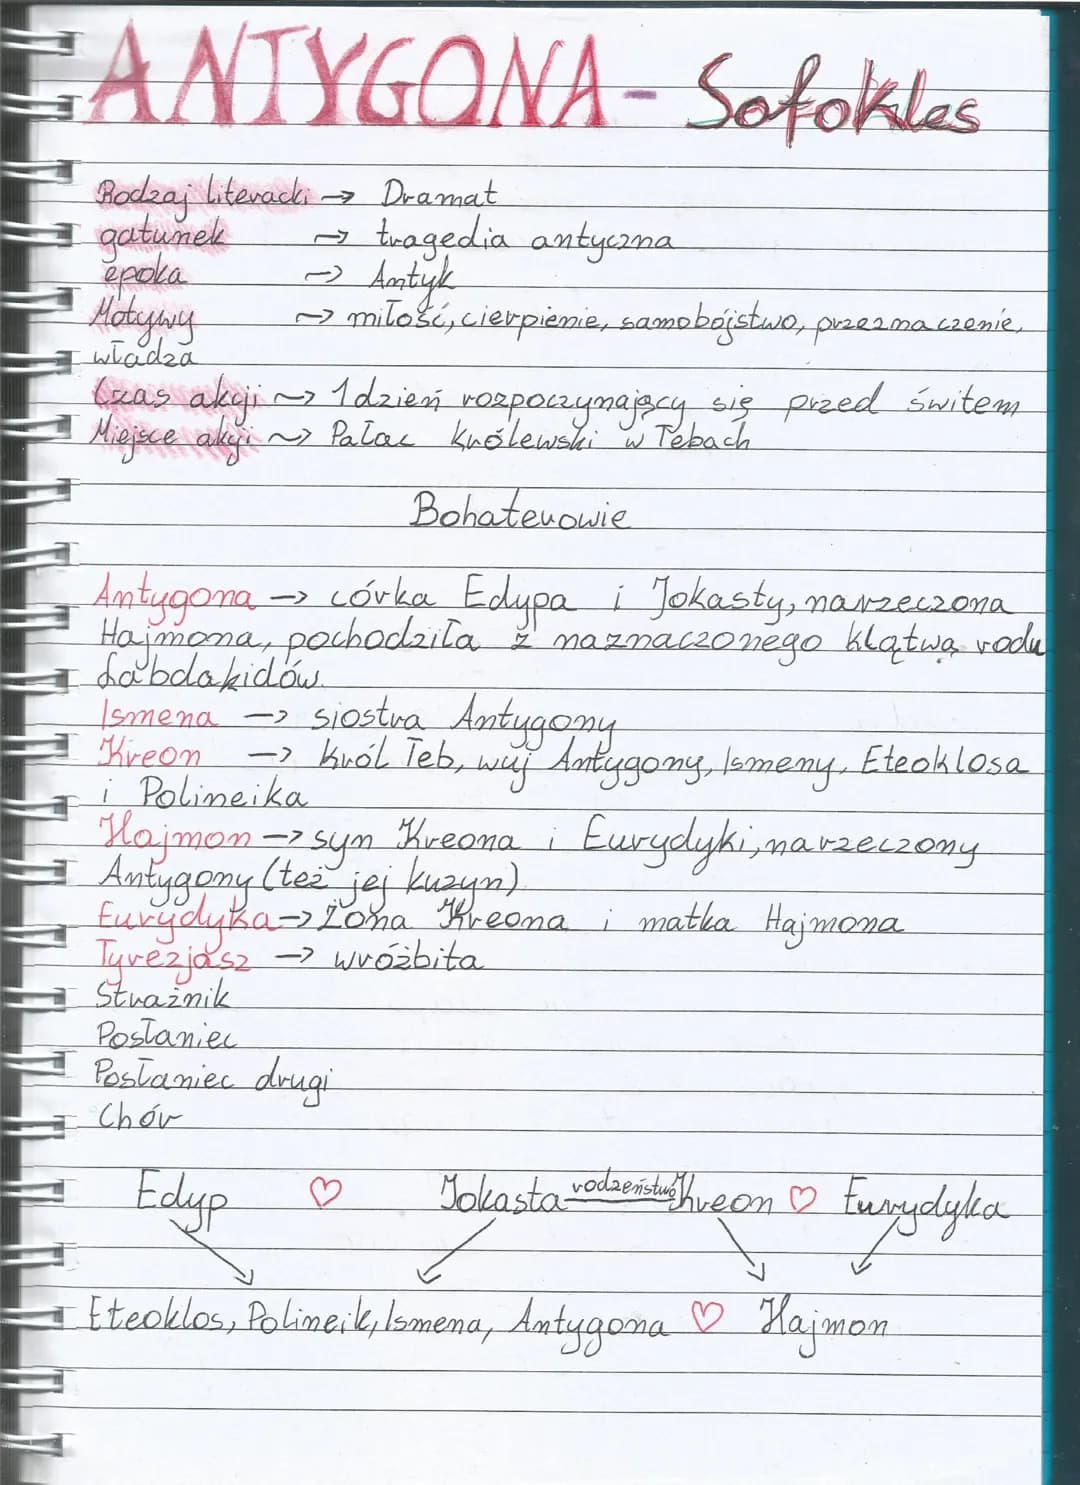 ANTYGONA - Sofokles
Rodzaj literacki → Dramat
gatunek → tragedia antyczna
epoka → Antyk
Motywy → miłość, cierpienie, samobójstwo, przeznaczenie,
władza
Czas akcji → 1 dzień rozpoczynający się przed świtem
Miejsce akcji → Pałac królewski w Tebach
Bohaterowie
Antygona → córka Edypa i Jokasty, narzeczona
Hajmona, pochodziła z naznaczonego klątwą rodu
Labdakidów.
Ismena → siostra Antygony
Kreon → król Teb, wuj Antygony, Ismeny, Eteoklosa
i Polineika
Hajmon → syn Kreona i Eurydyki, narzeczony
Antygony (też jej kuzyn)
Eurydyka → Żona Kreona i matka Hajmona
Tyrezjasz → wróżbita
Strażnik
Posłaniec
Posłaniec drugi
Chór
Edyp ♡ Jokasta rodzeństwo Kreon ♡ Eurydyka
Eteoklos, Polineik, Ismena, Antygona ♡ Hajmon